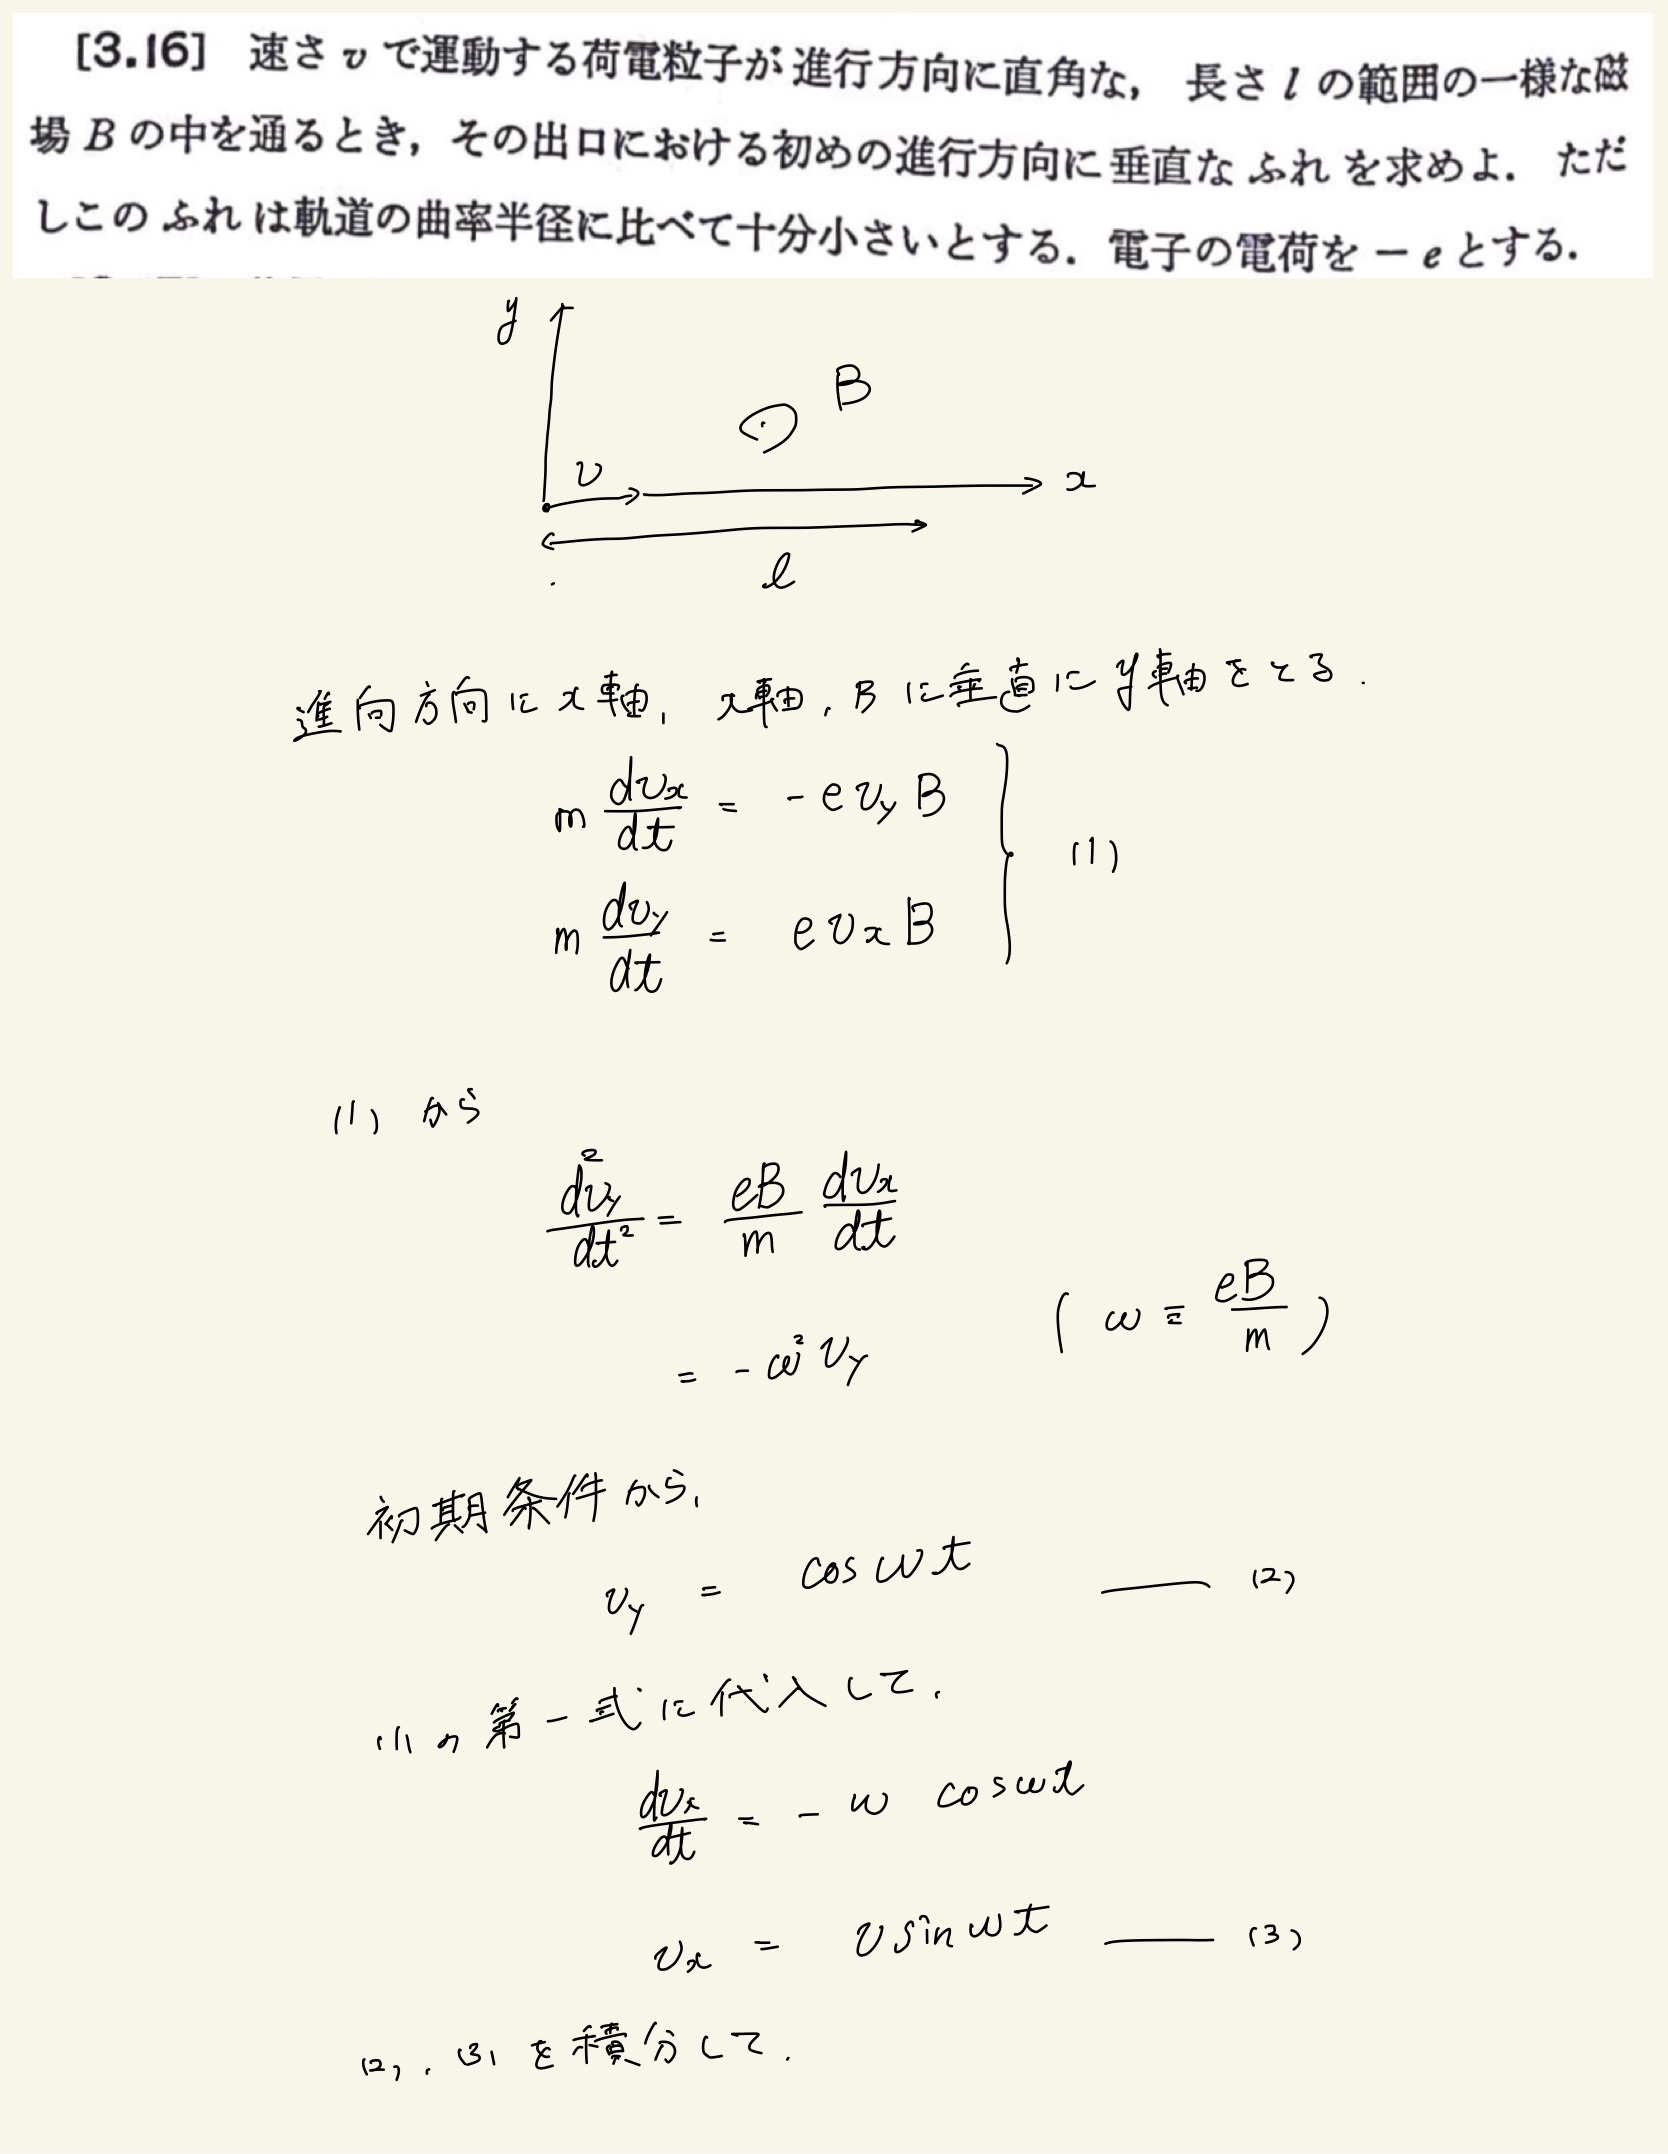 [3.16] 速さ v で運動する荷電粒子が進行方向に直角な, 長さ l の範囲の一様な磁
場 B の中を通るとき, その出口における初めの進行方向に垂直な ふれ を求めよ. ただ
しこの ふれ は軌道の曲率半径に比べて十分小さいとする. 電子の電荷を − e とする.
y
B
v
x
l
進向方向に x軸, x軸, B に垂直に y軸をとる.
m dv_x/dt = - e v_y B
(1)
m dv_y/dt = e v_x B
(1) から
d²v_y/dt² = eB/m dv_x/dt
= - ω² v_y ( ω ≡ eB/m )
初期条件から,
v_y = cos ωt —— (2)
(1)の第一式に代入して,
dv_x/dt = - ω cos ωt
v_x = v sin ωt —— (3)
(2), (3) を積分して.